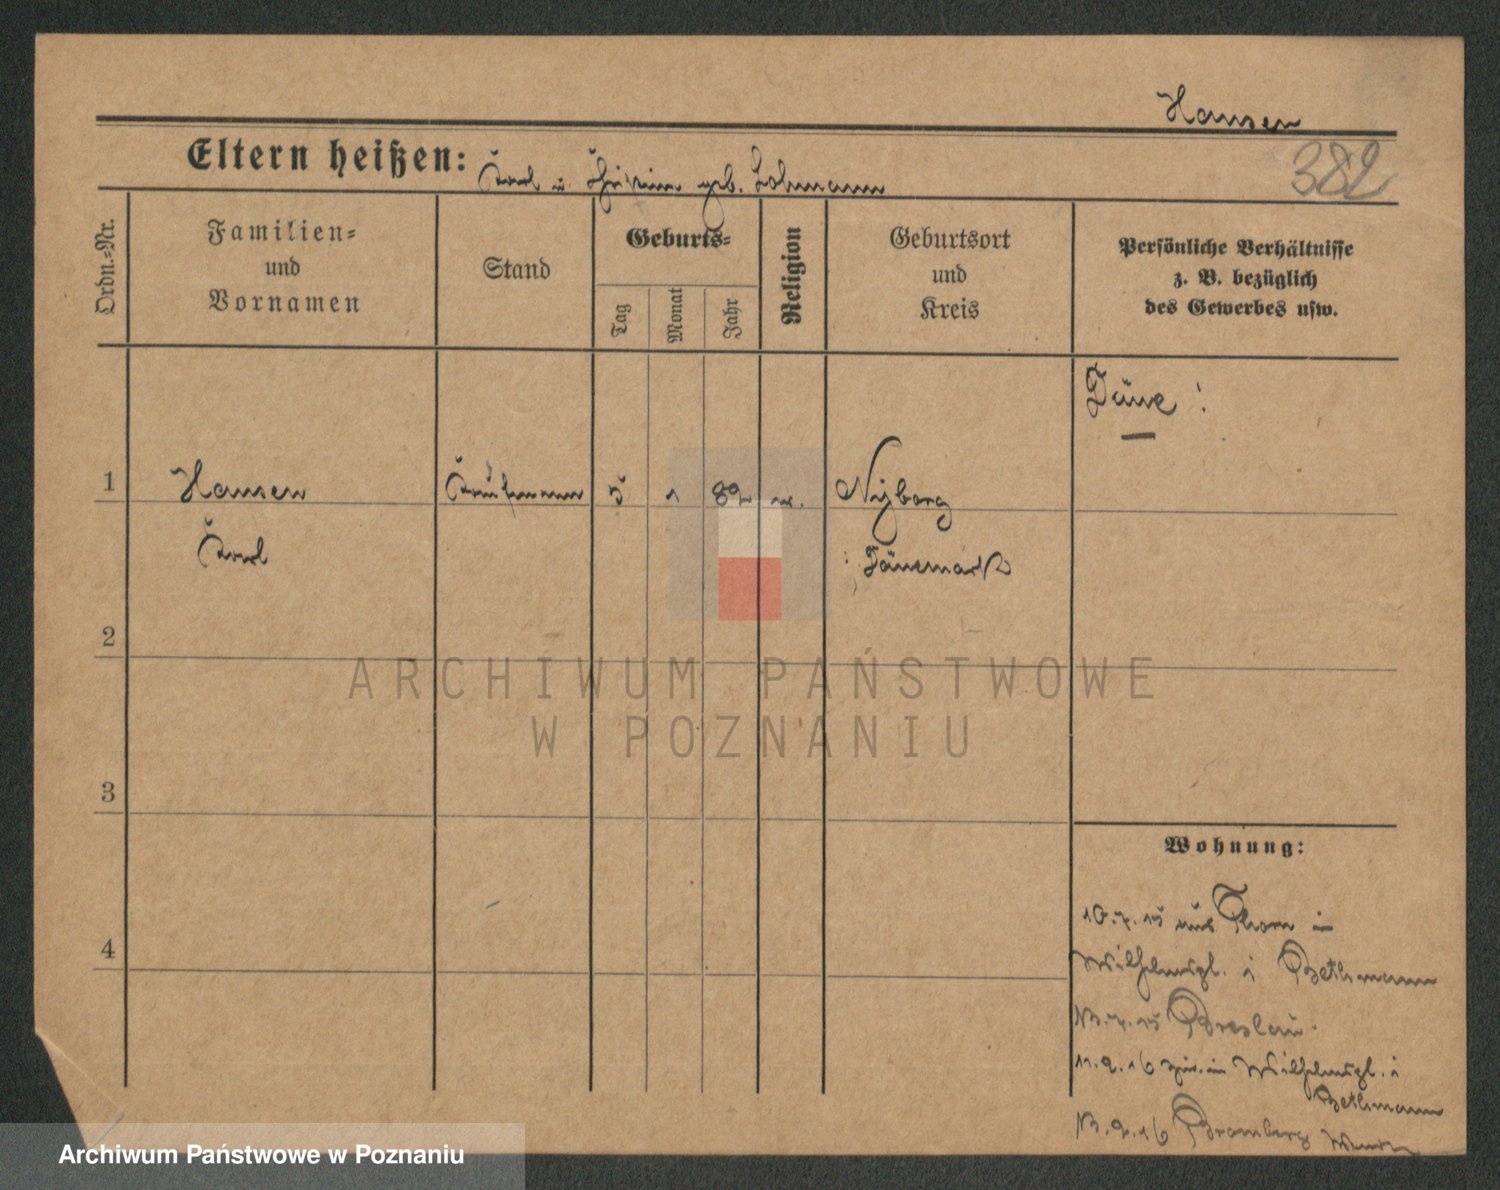 Hansen
382
Eltern heißen: Karl u. geb. Lohmann
Ordn.-Nr.
Familien-
und
Vornamen
Stand
Geburts-
Tag
Monat
Jahr
Religion
Geburtsort
und
Kreis
Persönliche Verhältnisse
z. B. bezüglich
des Gewerbes usw.
Däne !
1
Hansen
Kaufmann
5
1
82
Nyborg
Karl
Dänemark
2
ARCHIWUM PAŃSTWOWE
W POZNANIU
3
Wohnung:
4
10.7.15 aus Thorn in
Wilhelmspl. 1 Bethmann
13.7.15 Breslau.
11.2.16 zur. in Wilhelmspl. 1
Bethmann
13.2.16 Bromberg
Archiwum Państwowe w Poznaniu